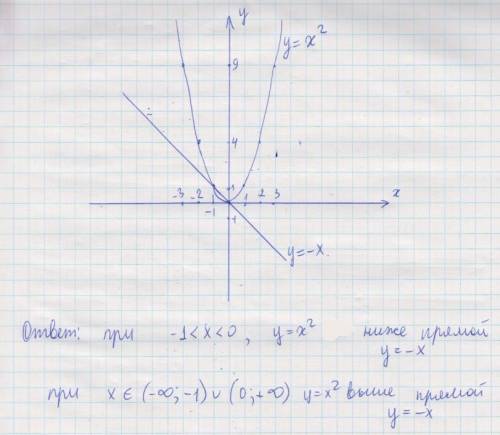 y
y = x²
9
4
1
-3 -2 -1 1 2 3 x
-1
y = -x.
Ответ: при -1 < x < 0, y = x² ниже прямой
y = -x
при x ∈ (-∞; -1) ∪ (0; +∞) y = x² выше прямой
y = -x